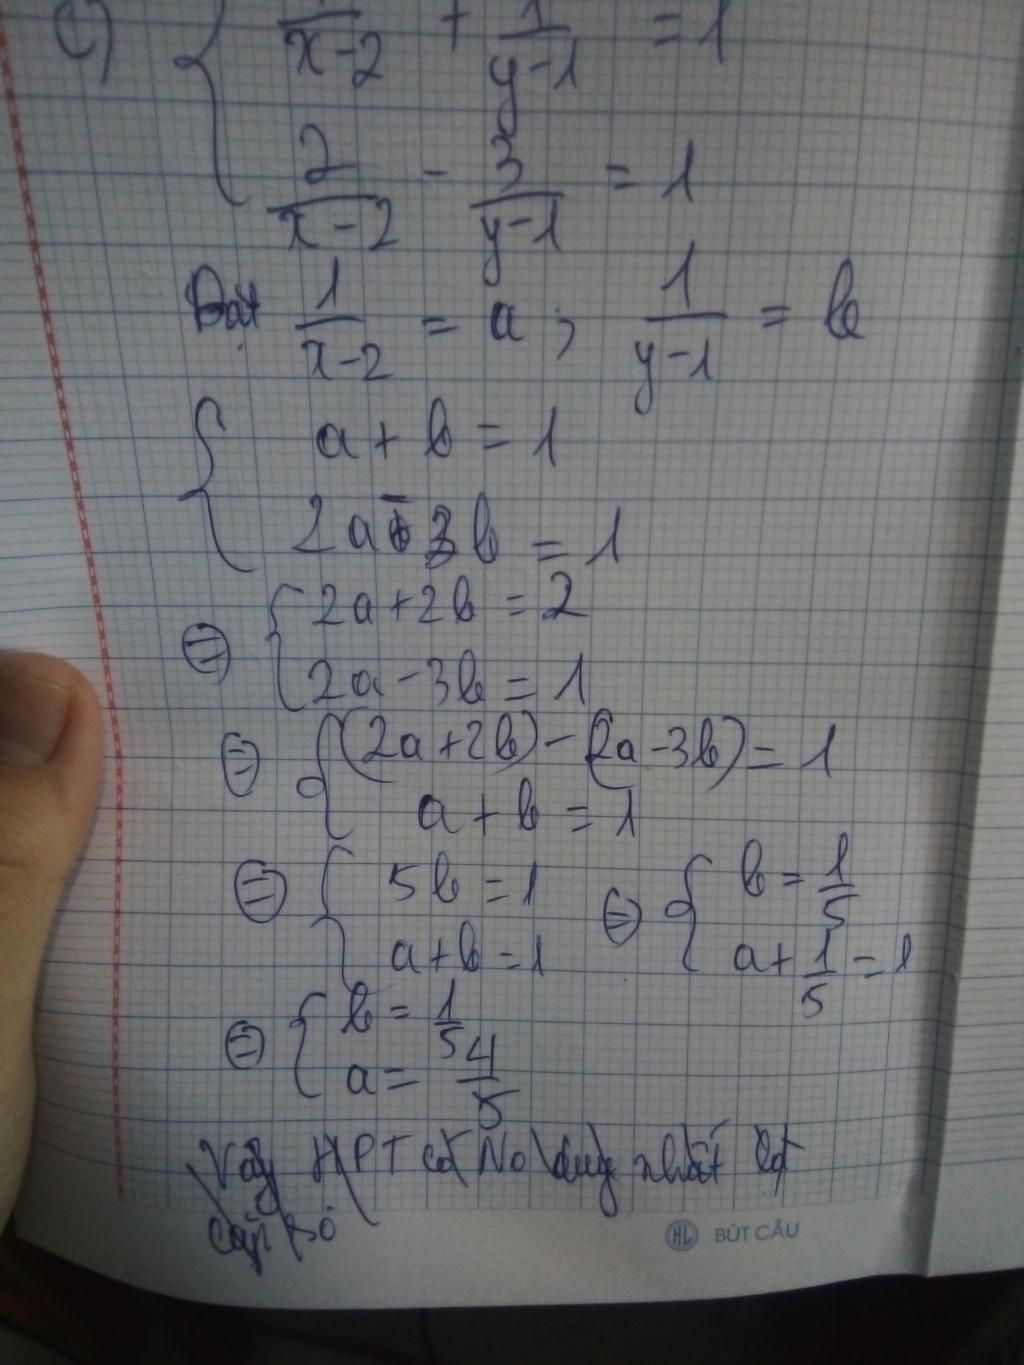 c) { 1/(x-2) + 1/(y-1) = 1
2/(x-2) - 3/(y-1) = 1
Đặt 1/(x-2) = a ; 1/(y-1) = b
{ a + b = 1
2a - 3b = 1
⇔ { 2a + 2b = 2
2a - 3b = 1
⇔ { (2a + 2b) - (2a - 3b) = 1
a + b = 1
⇔ { 5b = 1 ⇔ { b = 1/5
a + b = 1 a + 1/5 = 1
⇔ { b = 1/5
a = 4/5
Vậy HPT có No duy nhất là
cặp số
HL BÚT CÂU